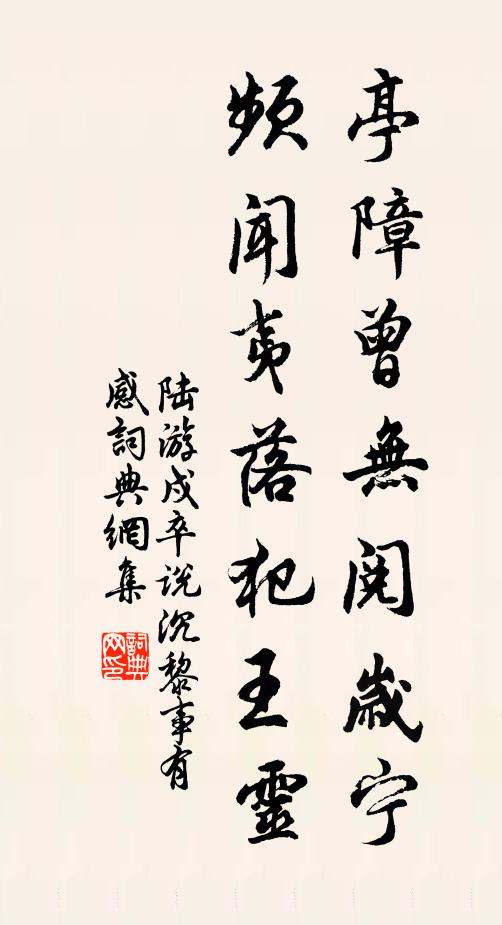 亭障曾無閱歲宁
頻聞夷落犯王靈
陆游戍卒说沉黎事有
感詞典網集
詞典
网印